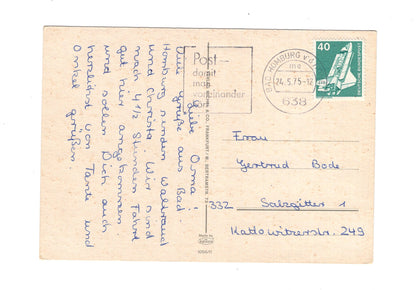 Liebe Oma!
Viele Grüße aus Bad
Homburg senden Waltraud
und Christa. Wir sind
nach 4 1/2 Stunden Fahrt
gut hier angekommen
und sollen Dich auch
herzlichst von Tante und
Onkel grüßen.
Post-
damit
man
voneinander
hört
BAD HOMBURG v d
24.5.75-12
638
40
DEUTSCHE BUNDESPOST
Frau
Gertrud Bode
332 Salzgitter 1
Kattowitzerstr. 249
& CO., FRANKFURT/M.